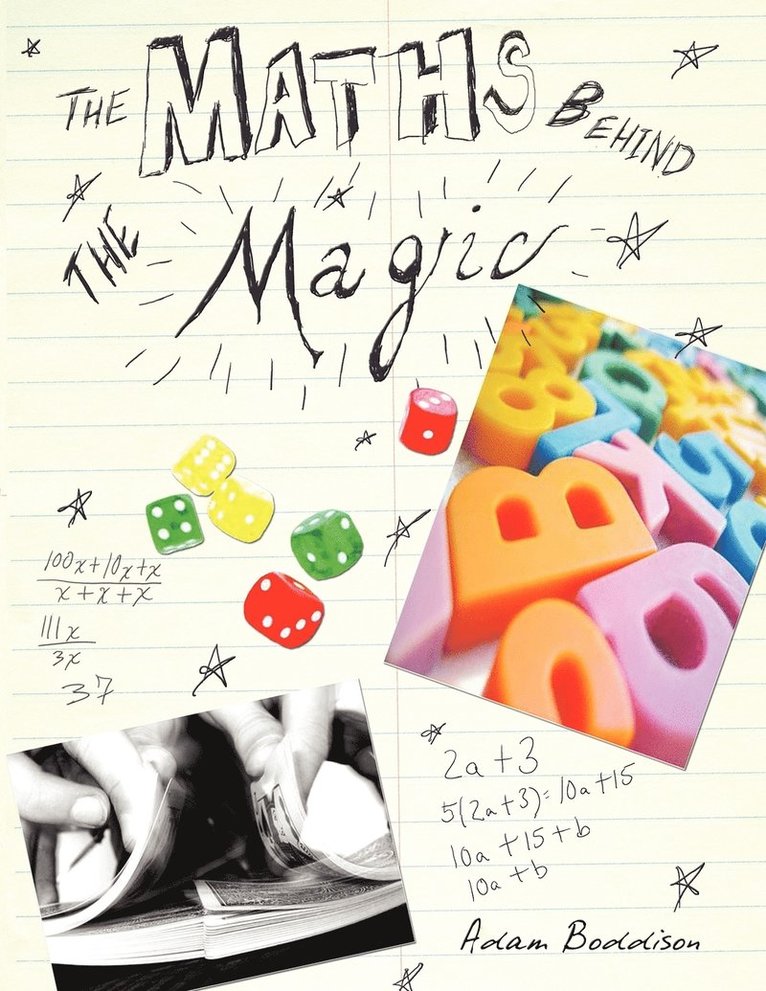 THE MATHS BEHIND
THE Magic
100x+10x+x
x+x+x
111x
3x
37
2a+3
5(2a+3)=10a+15
10a+15+b
10a+b
Adam Boddison